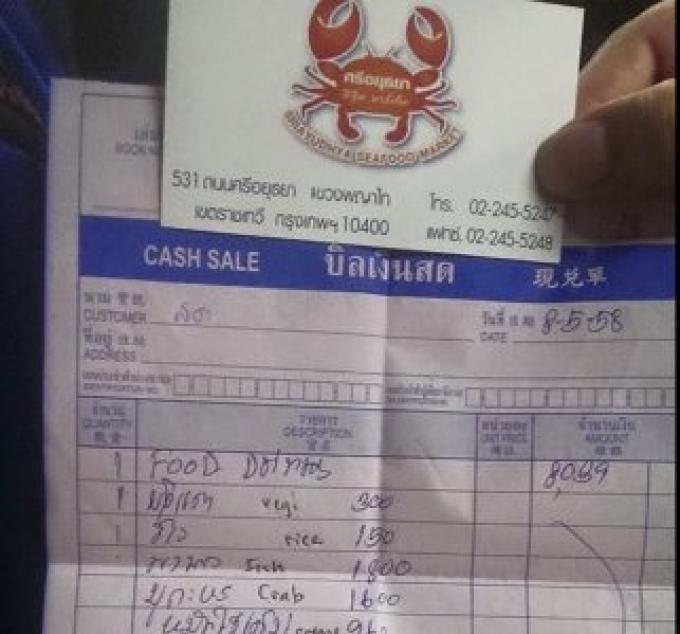 ศรีอยุธยา
SRIAYUDHYA SEAFOOD MARKET
531 ถนนศรีอยุธยา แขวงพญาไท โทร. 02-245-5247
เขตราชเทวี กรุงเทพฯ 10400 แฟกซ์. 02-245-5248
CASH SALE บิลเงินสด 現兌單
นาม
CUSTOMER สด วันที่ 8-5-58
DATE
ที่อยู่
ADDRESS
จำนวน รายการ หน่วยละ จำนวนเงิน
QUANTITY DESCRIPTION UNIT PRICE AMOUNT
1 FOOD
1 vegi 300
1 ข้าว rice 150
Fish 1800
Crab 1600